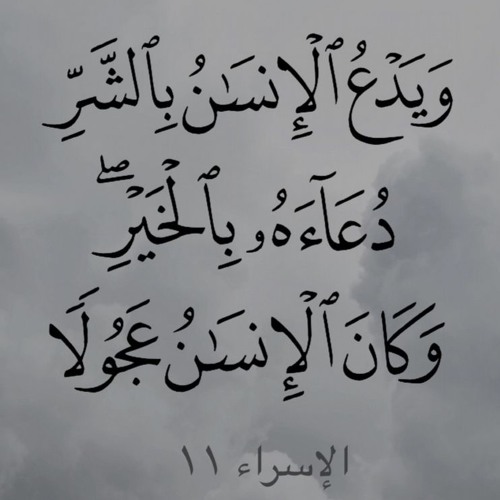 وَيَدۡعُ ٱلۡإِنسَٰنُ بِٱلشَّرِّ
دُعَآءَهُۥ بِٱلۡخَيۡرِۖ
وَكَانَ ٱلۡإِنسَٰنُ عَجُولٗا
الإسراء ١١